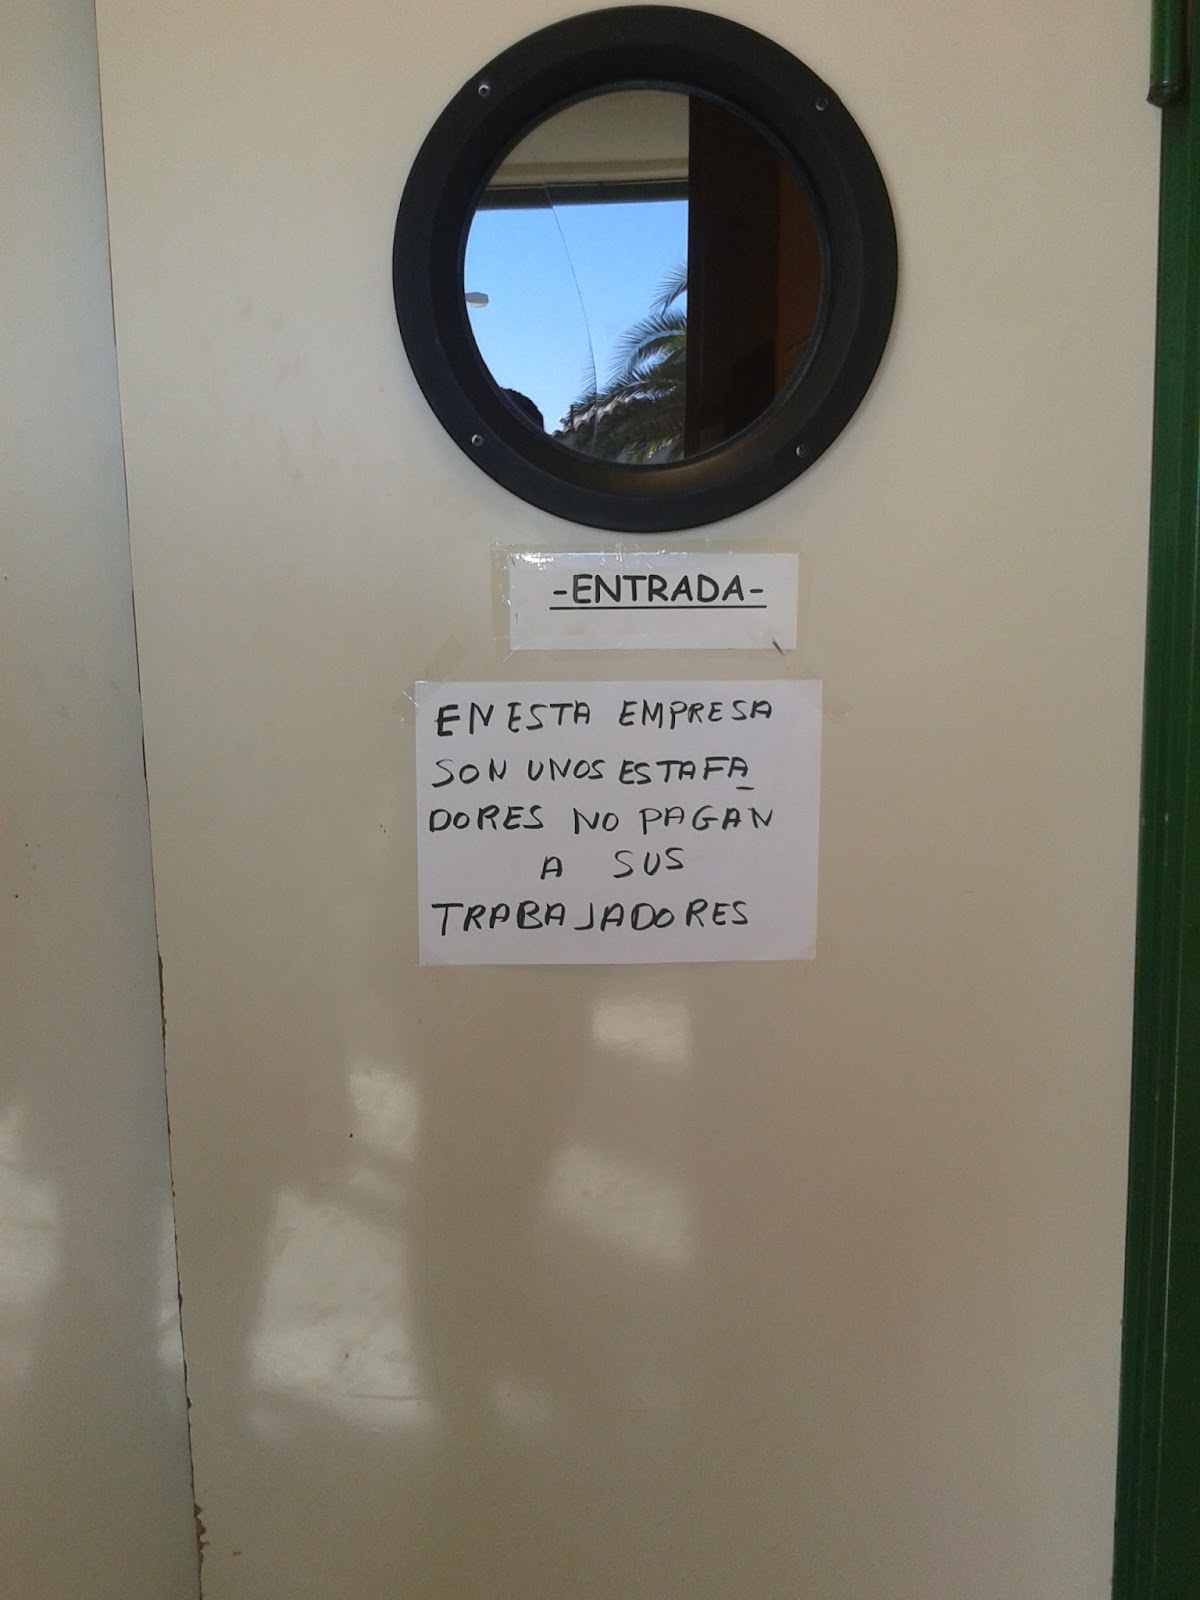 -ENTRADA-
EN ESTA EMPRESA
SON UNOS ESTAFA
DORES NO PAGAN
A SUS
TRABAJADORES